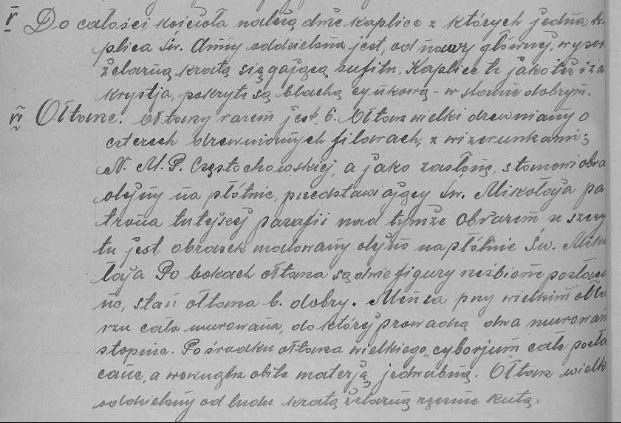 V Do całości kościoła należą dwie kaplice z których jedna ka
plica Św. Anny oddzielona jest, od nawy głównej, wyso
żelazną kratą sięgającą sufitu. Kaplice te jako też i za
krystja, pokryte są blachą cynkową - w stanie dobrym.
VI Ołtarze. Ołtarzy razem jest 6. Ołtarz wielki drewniany o
czterech drewnianych filarach, z wizerunkami:
N. M. P. Częstochowskiej, a jako zasłona, stanowi obra
olejny na płótnie, przedstawiający Św. Mikołaja pa
trona tutejszej parafii nad tymże obrazem u szczy
tu jest obrazek malowany olejno na płótnie Św. Miko
łaja Po bokach ołtarza są dwie figury rzeźbione pozłaca
ne, stan ołtarza b. dobry. Mensa przy wielkim ołta
rzu cała murowana, do której prowadzą dwa murowan
stopnie. Pośrodku ołtarza wielkiego, cyborjum całe pozła
cane, a wewnątrz obite materją jedwabną. Ołtarz wielk
oddzielony od ludu kratą żelazną ręcznie kutą.